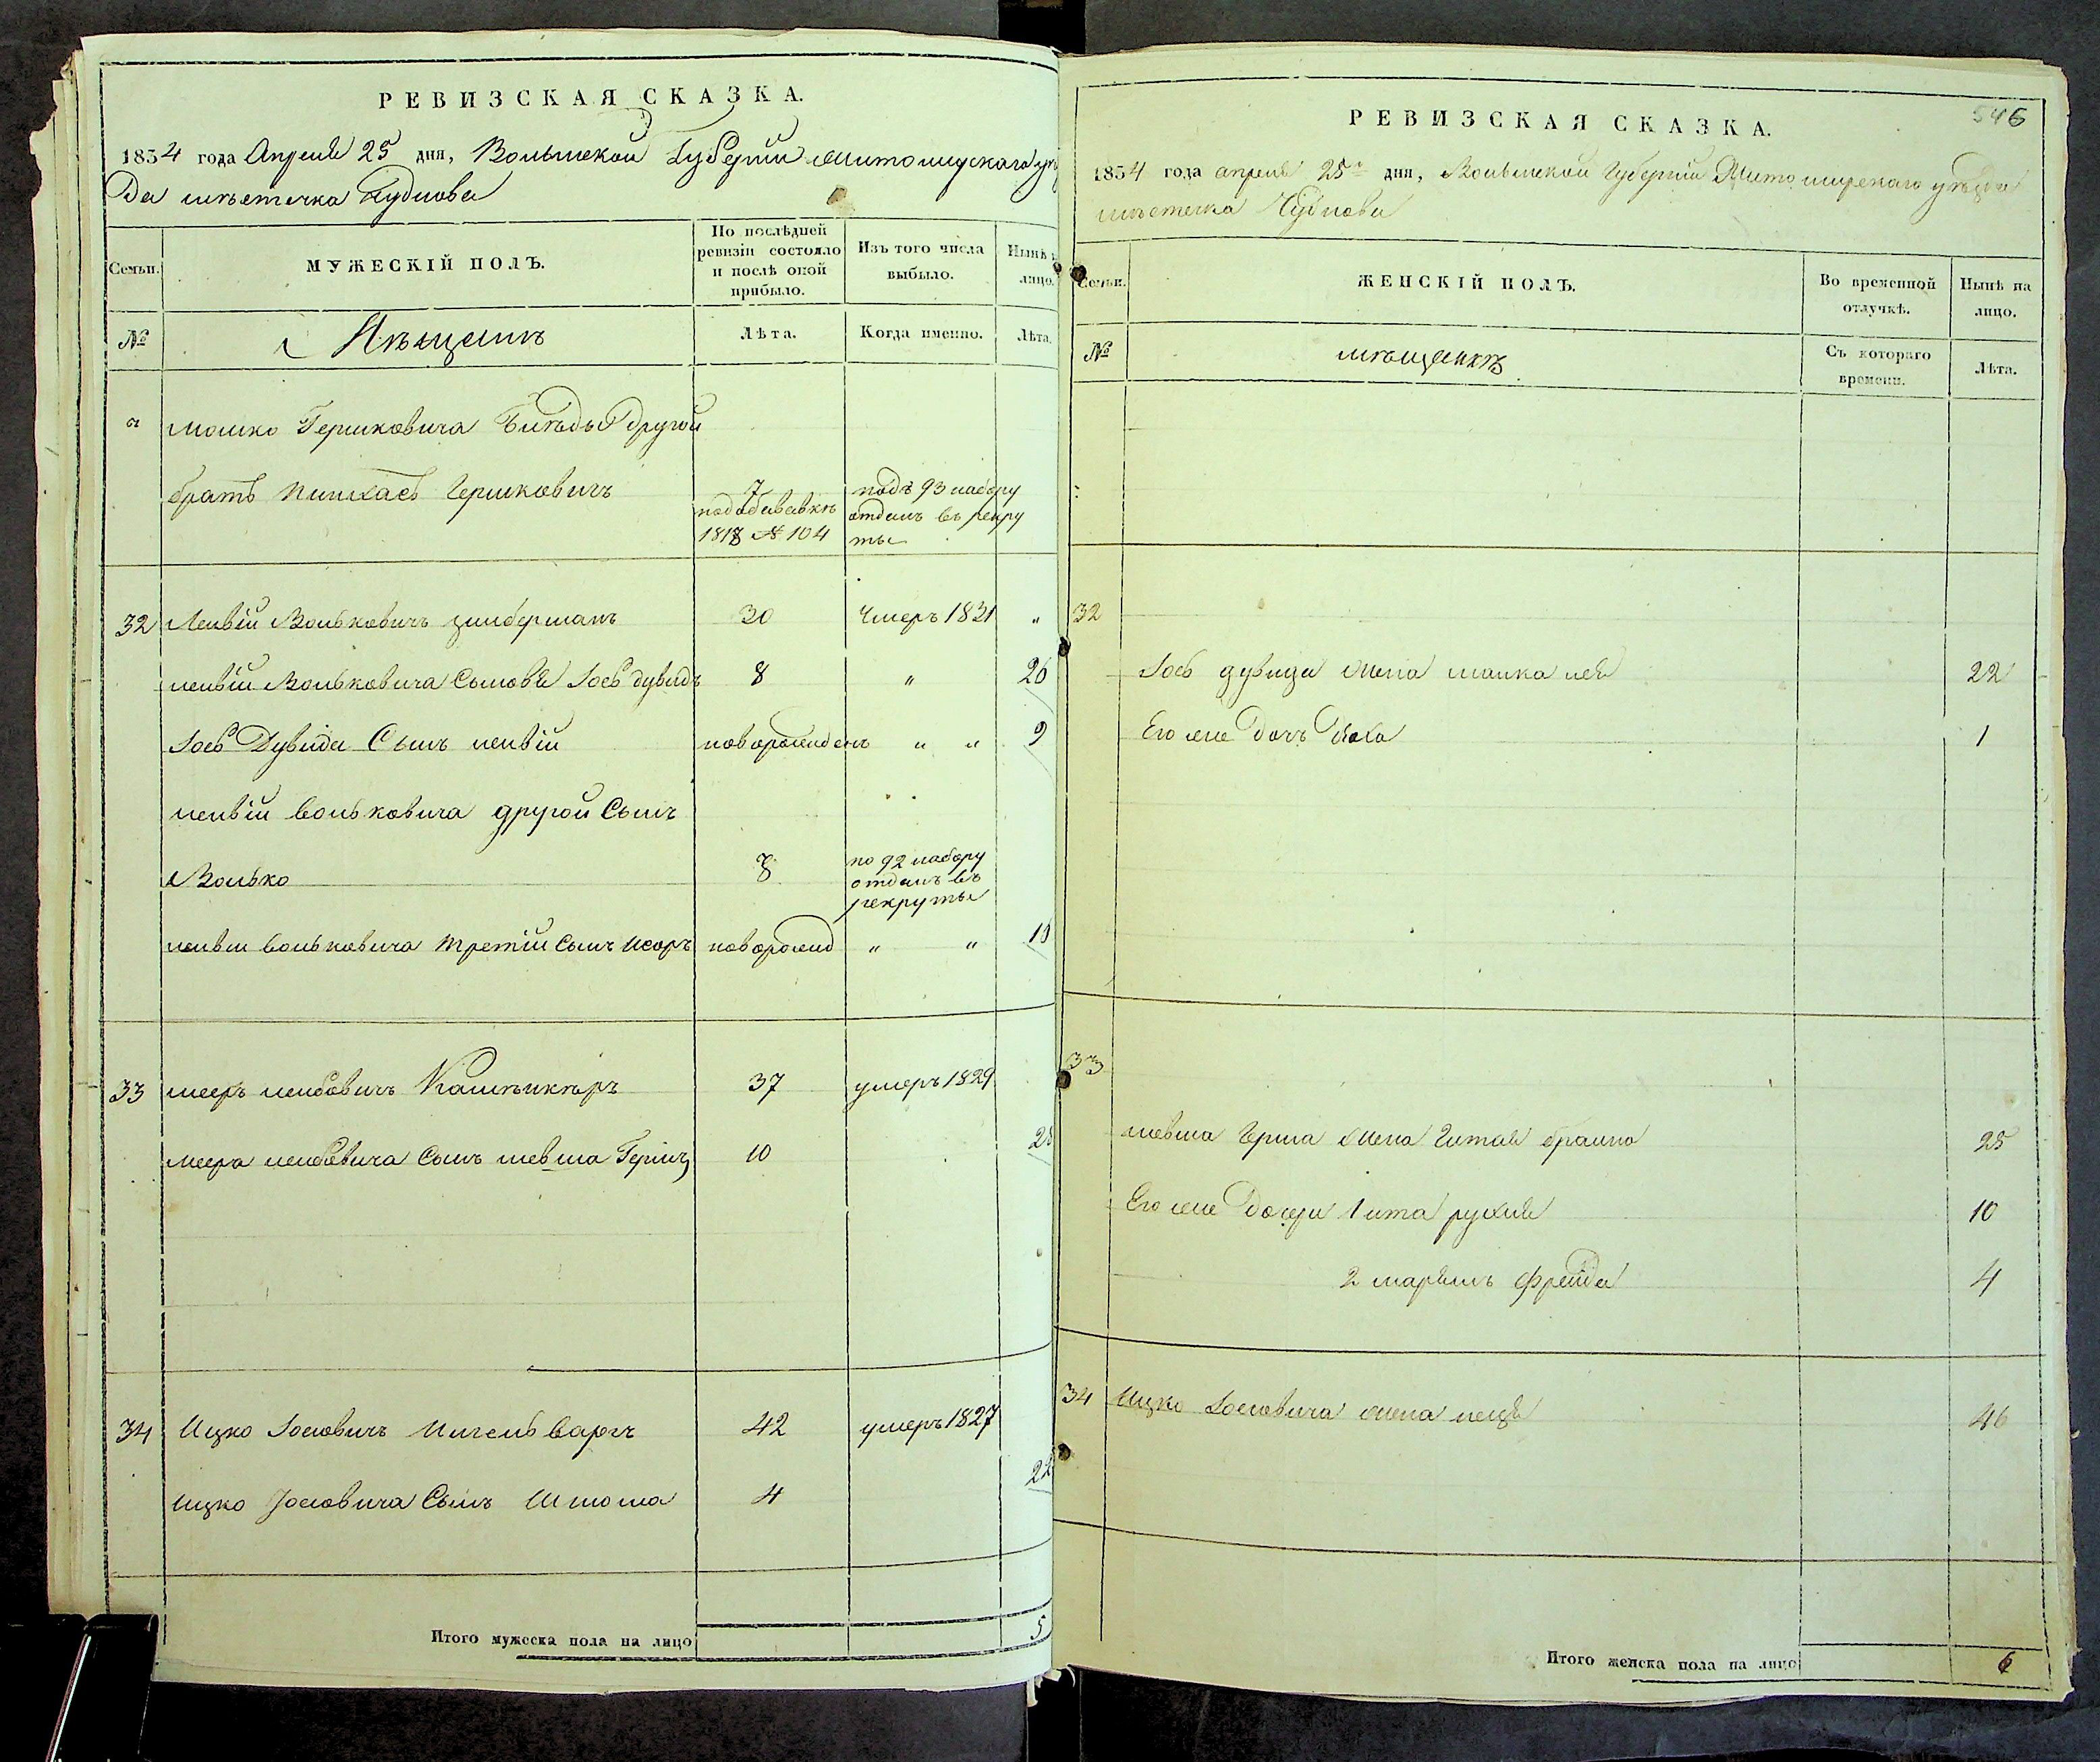 РЕВИЗСКАЯ СКАЗКА.
1834 года Апреля 25 дня, Волынской Губернии Житомирскаго уѣз
да мѣстечка Чуднова
Семьи.
МУЖЕСКІЙ ПОЛЪ.
По послѣдней ревизіи состояло и послѣ оной прибыло.
Изъ того числа выбыло.
Нынѣ на лицо.
№
Мѣщанъ
Лѣта.
Когда именно.
Лѣта.
Мошко Гершковича другой
братъ Пинхасъ Гершковичъ 7 подъ 93 набору
1818 № 104 отданъ въ рекру
ты
32 Лейвій Вольковичъ Цимберманъ 30 Умеръ 1831 "
Лейвій Вольковича Сыновья Іосъ дувидъ 8 " 26
Іосъ Дувида Сынъ лейвій новорожденъ " " 9
лейвій вольковича другой Сынъ
Волько 8 по 92 набору
отданъ въ
рекруты
лейвій вольковича третій Сынъ новорожд " "
33 меръ лейбовичъ 37 умеръ 1829
меера лейбовича Сынъ мевша Гершъ 10
34 Ицко Іосиовичъ 42 умеръ 1827
Ицко Іосиовича Сынъ Шлома 4 22
Итого мужеска пола на лицо 5
546
РЕВИЗСКАЯ СКАЗКА.
1834 года апреля 25 дня, Волынской Губерніи Житомирскаго уѣзда
мѣстечка Чуднова
Семьи.
ЖЕНСКІЙ ПОЛЪ.
Во временной отлучкѣ.
Нынѣ на лицо.
№
мѣщанкъ
Съ котораго времени.
Лѣта.
32
Іосъ дувида жена 22
Его же Дочь Хая 1
33
мевша Герша жена Гитля браина 25
Его же Дочери 1 ита рухля 10
2 марьямъ фрейда 4
34 Ицко Іосиовича жена 46
Итого женска пола на лицо 6